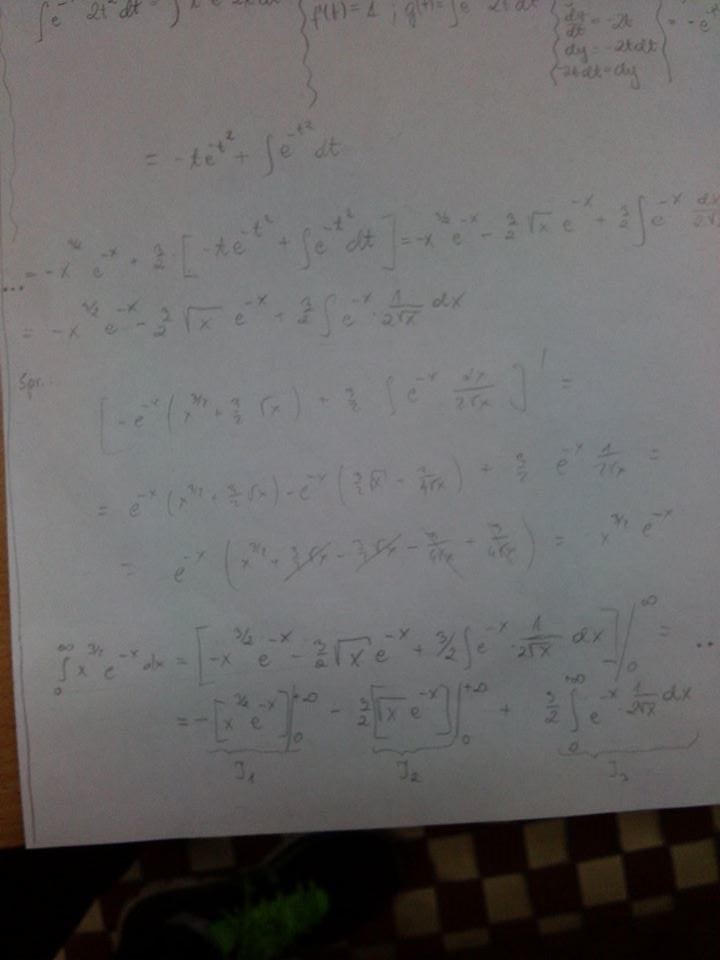 ∫e^{-t²} 2t² dt =
f'(t) = 1 ; g(t) = ∫e 2t dt
dy/dt = -2t
dy = -2t dt
-2t dt = dy
= -te^{-t²} + ∫e^{-t²} dt
... = -x^{3/2} e^{-x} + 3/2 · [-te^{-t²} + ∫e^{-t²} dt] = -x^{3/2} e^{-x} - 3/2 √x e^{-x} + 3/2 ∫e^{-x} dx/2√x
= -x^{3/2} e^{-x} - 3/2 √x e^{-x} + 3/2 ∫ e^{-x} · 1/2√x dx
Spr.:
[-e^{-x} (x^{3/2} + 3/2 √x) + 3/2 ∫ e^{-x} dx/2√x ]' =
= e^{-x} (x^{3/2} + 3/2 √x) - e^{-x} (3/2 √x - 3/4√x) + 3/2 e^{-x} 1/2√x =
= e^{-x} (x^{3/2} + 3/2 √x - 3/2 √x - 3/4√x + 3/4√x) = x^{3/2} e^{-x}
∫_0^∞ x^{3/2} e^{-x} dx = [-x^{3/2} e^{-x} - 3/2 √x e^{-x} + 3/2 ∫e^{-x} · 1/2√x dx]|_0^∞ = ..
= -[x^{3/2} e^{-x}]|_0^{+∞} - 3/2 [√x e^{-x}]|_0^{+∞} + 3/2 ∫_0^{+∞} e^{-x} · 1/2√x dx
J₁ J₂ J₃